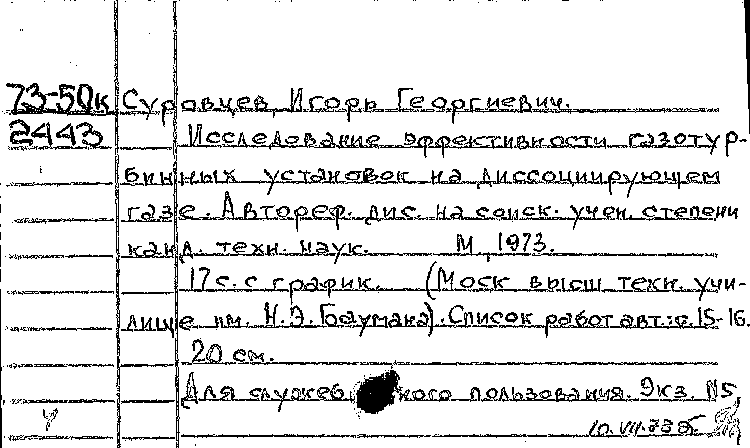 73-50к Суровцев, Игорь Георгиевич.
2443 Исследование эффективности газотур-
бинных установок на диссоциирующем
газе. Автореф. дис. на соиск. учен. степени
канд. техн. наук. М., 1973.
17 с. с график. (Моск высш техн. учи-
лище им. Н.Э.Баумана). Список работ авт.: с. 15-16.
20 см.
Для служеб ного пользования. Экз. №5